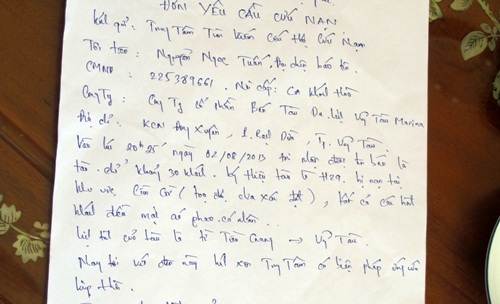 ĐƠN YÊU CẦU CỨU NẠN
Kính gửi: Trung Tâm Tìm Kiếm Cứu Hộ Cứu Nạn
Tôi tên: Nguyễn Ngọc Tuấn,
CMND: 225389661. Nơi cấp: CA Khánh Hòa
Công Ty: Công Ty Cổ phần Du lịch Vũng Tàu Marina
Địa chỉ: KCN Đông Xuyên, P. Rạch Dừa, Tp. Vũng Tàu.
Vào lúc 20h25 ngày 02/08/2013 tôi nhận được tin báo là
tàu chở khoảng 30 khách. Ký hiệu tàu là H29. bị nạn tại
khu vực Cần Giờ (tọa độ chưa xác định),
khách đều mặc áo phao cá nhân.
Lịch trình của tàu là từ Tân → Vũng Tàu.
Nay tôi viết đơn này kính xin Trung Tâm có biện pháp ứng cứu
kịp thời.